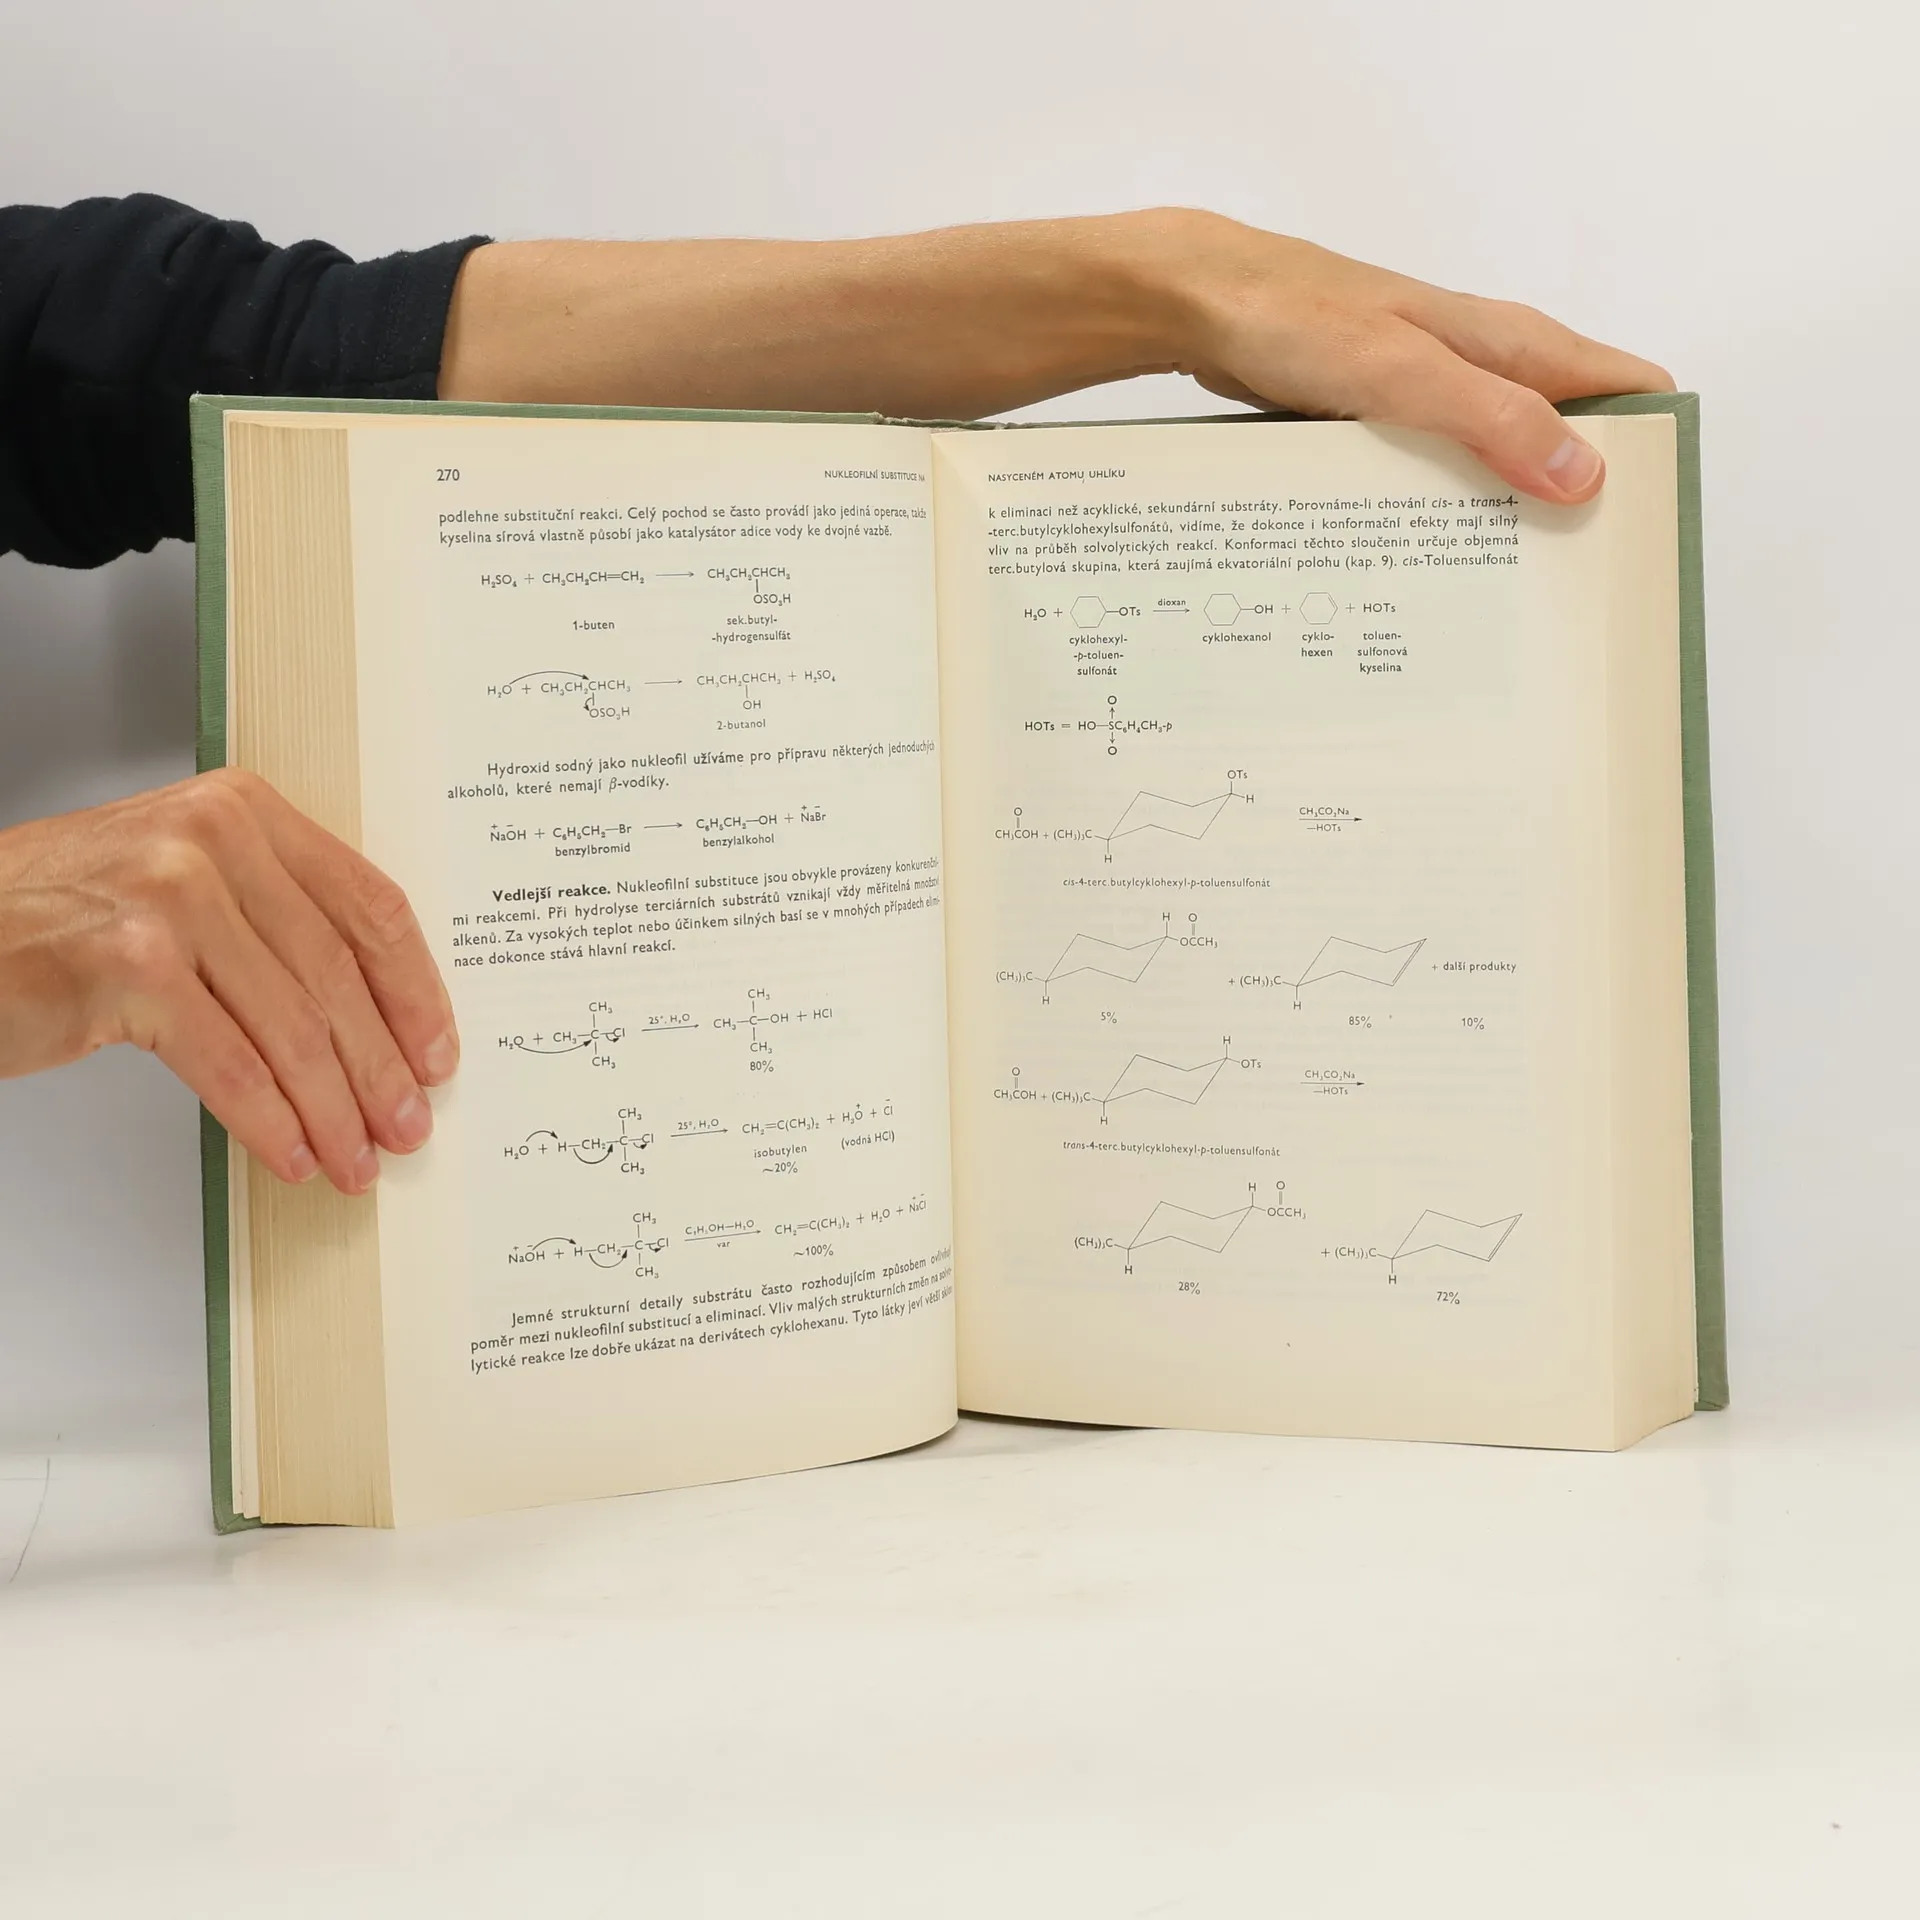 270
NUKLEOFILNÍ SUBSTITUCE NA
podlehne substituční reakci. Celý pochod se často provádí jako jediná operace, takže
kyselina sírová vlastně působí jako katalysátor adice vody ke dvojné vazbě.
H₂SO₄ + CH₃CH₂CH=CH₂ ⟶ CH₃CH₂CHCH₃
OSO₃H
1-buten
sek.butyl-
-hydrogensulfát
H₂O + CH₃CH₂CHCH₃ ⟶ CH₃CH₂CHCH₃ + H₂SO₄
OSO₃H
OH
2-butanol
Hydroxid sodný jako nukleofil užíváme pro přípravu některých jednoduchých
alkoholů, které nemají β-vodíky.
Na⁺OH⁻ + C₆H₅CH₂—Br ⟶ C₆H₅CH₂—OH + Na⁺Br⁻
benzylbromid benzylalkohol
Vedlejší reakce. Nukleofilní substituce jsou obvykle provázeny konkurenční-
mi reakcemi. Při hydrolyse terciárních substrátů vznikají vždy měřitelná množství
alkenů. Za vysokých teplot nebo účinkem silných basí se v mnohých případech elimi-
nace dokonce stává hlavní reakcí.
CH₃ CH₃
H₂O + CH₃—C—Cl 25°, H₂O ⟶ CH₃—C—OH + HCl
CH₃ CH₃
80%
CH₃
H₂O + H—CH₂—C—Cl 25°, H₂O ⟶ CH₂=C(CH₃)₂ + H₃O⁺ + Cl⁻
CH₃
isobutylen (vodná HCl)
~20%
CH₃
Na⁺OH⁻ + H—CH₂—C—Cl C₂H₅OH—H₂O ⟶ CH₂=C(CH₃)₂ + H₂O + Na⁺Cl⁻
var
CH₃
~100%
Jemné strukturní detaily substrátu často rozhodujícím způsobem ovlivňují
poměr mezi nukleofilní substitucí a eliminací. Vliv malých strukturních změn na solvo-
lytické reakce lze dobře ukázat na derivátech cyklohexanu. Tyto látky jeví větší sklon
NASYCENÉM ATOMU UHLÍKU
k eliminaci než acyklické, sekundární substráty. Porovnáme-li chování cis- a trans-4-
-terc.butylcyklohexylsulfonátů, vidíme, že dokonce i konformační efekty mají silný
vliv na průběh solvolytických reakcí. Konformaci těchto sloučenin určuje objemná
terc.butylová skupina, která zaujímá ekvatoriální polohu (kap. 9). cis-Toluensulfonát
H₂O + —OTs dioxan ⟶ —OH + + HOTs
cyklohexyl- cyklohexanol cyklo- toluen-
-p-toluen- hexen sulfonová
sulfonát kyselina
O
HOTs = HO—SC₆H₄CH₃-p
O
OTs
H
O
CH₃COH + (CH₃)₃C CH₃CO₂Na ⟶
—HOTs
H
cis-4-terc.butylcyklohexyl-p-toluensulfonát
H O
OCCH₃
(CH₃)₃C + (CH₃)₃C + další produkty
H H
5% 85% 10%
H
OTs
O
CH₃COH + (CH₃)₃C CH₃CO₂Na ⟶
—HOTs
H
trans-4-terc.butylcyklohexyl-p-toluensulfonát
H O
OCCH₃
(CH₃)₃C + (CH₃)₃C
H H
28% 72%